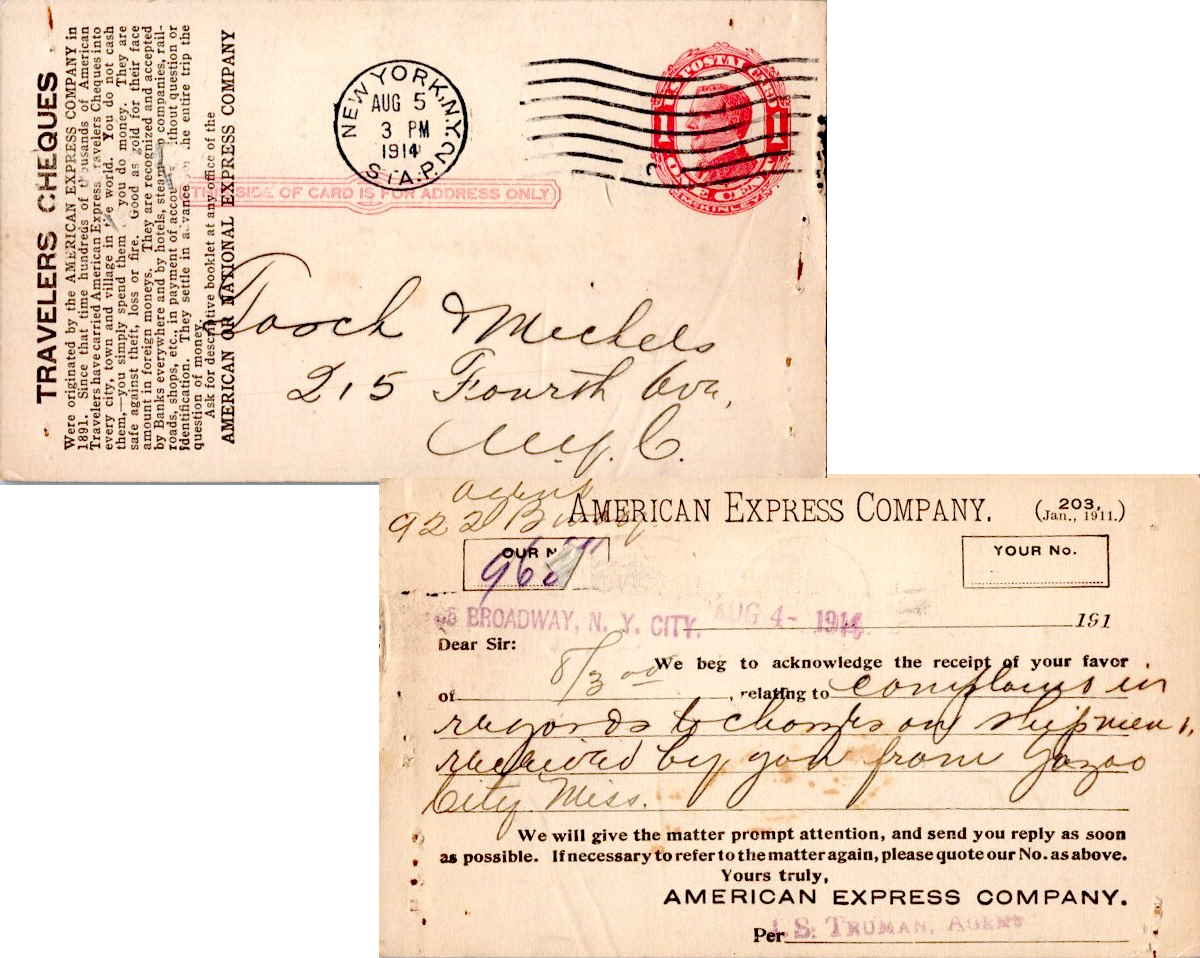 TRAVELERS CHEQUES
Were originated by the AMERICAN EXPRESS COMPANY in
1891. Since that time hundreds of thousands of American
Travelers have carried American Express Travelers Cheques into
every city, town and village in the world. You do not cash
them,—you simply spend them you do money. They are
safe against theft, loss or fire. Good as gold for their face
amount in foreign moneys. They are recognized and accepted
by Banks everywhere and by hotels, steam companies, rail-
roads, shops, etc., in payment of accou without question or
identification. They settle in advance the entire trip the
question of money.
Ask for descriptive booklet at any office of the
AMERICAN OR NATIONAL EXPRESS COMPANY
NEW YORK, N.Y.
AUG 5
3 PM
1914
STA. P.
U.S. POSTAL CARD
1 1
ONE CENT
McKINLEY
THIS SIDE OF CARD IS FOR ADDRESS ONLY
Tosch & Michels
215 Fourth Ave,
N.Y.C.
agent
922
AMERICAN EXPRESS COMPANY.
203,
(Jan., 1911.)
OUR N
YOUR No.
65 BROADWAY, N. Y. CITY. AUG 4- 1914 191
Dear Sir:
We beg to acknowledge the receipt of your favor
of 8/3 , relating to complaint in
regards to charges on shipment,
received by you from Yazoo
City Miss.
We will give the matter prompt attention, and send you reply as soon
as possible. If necessary to refer to the matter again, please quote our No. as above.
Yours truly,
AMERICAN EXPRESS COMPANY.
Per J. S. TRUMAN, AGENT